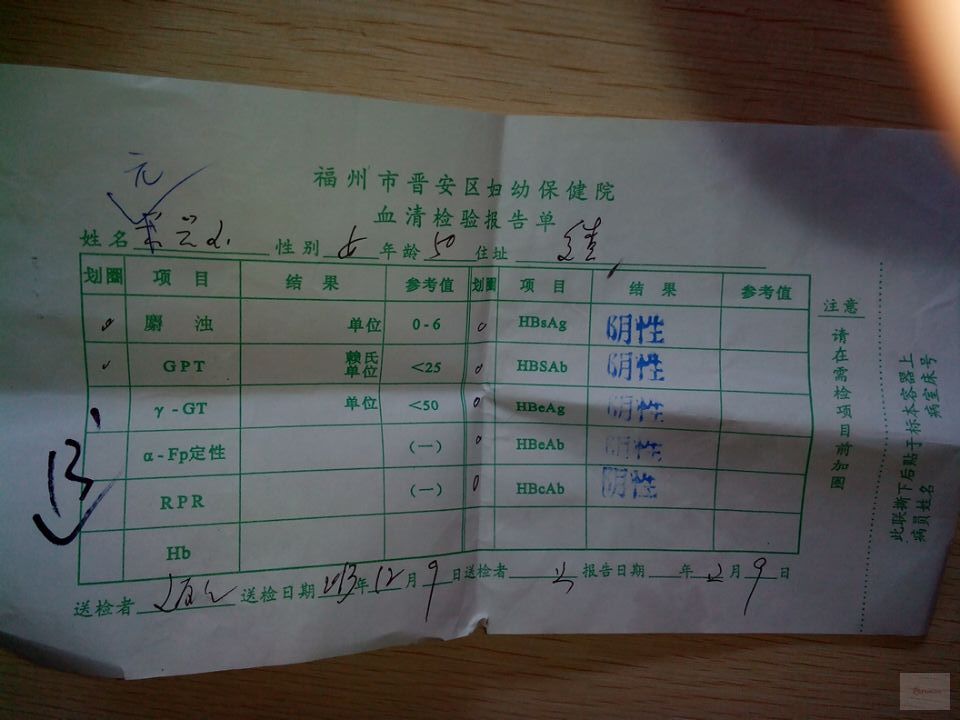 元
福州市晋安区妇幼保健院
血清检验报告单
姓名 性别 女 年龄 50 住址
划圈 项目 结果 参考值 划圈 项目 结果 参考值
麝浊 单位 0-6 HBsAg 阴性
GPT 赖氏单位 <25 HBSAb 阴性
γ-GT 单位 <50 HBeAg 阴性
α-Fp定性 (一) HBeAb 阴性
RPR (一) HBcAb 阴性
Hb
送检者 送检日期 2013年12月9日 送检者 报告日期 年12月9日
注意
请在需检项目前加圈
此联撕下后贴于标本容器上
病员姓名 病室床号